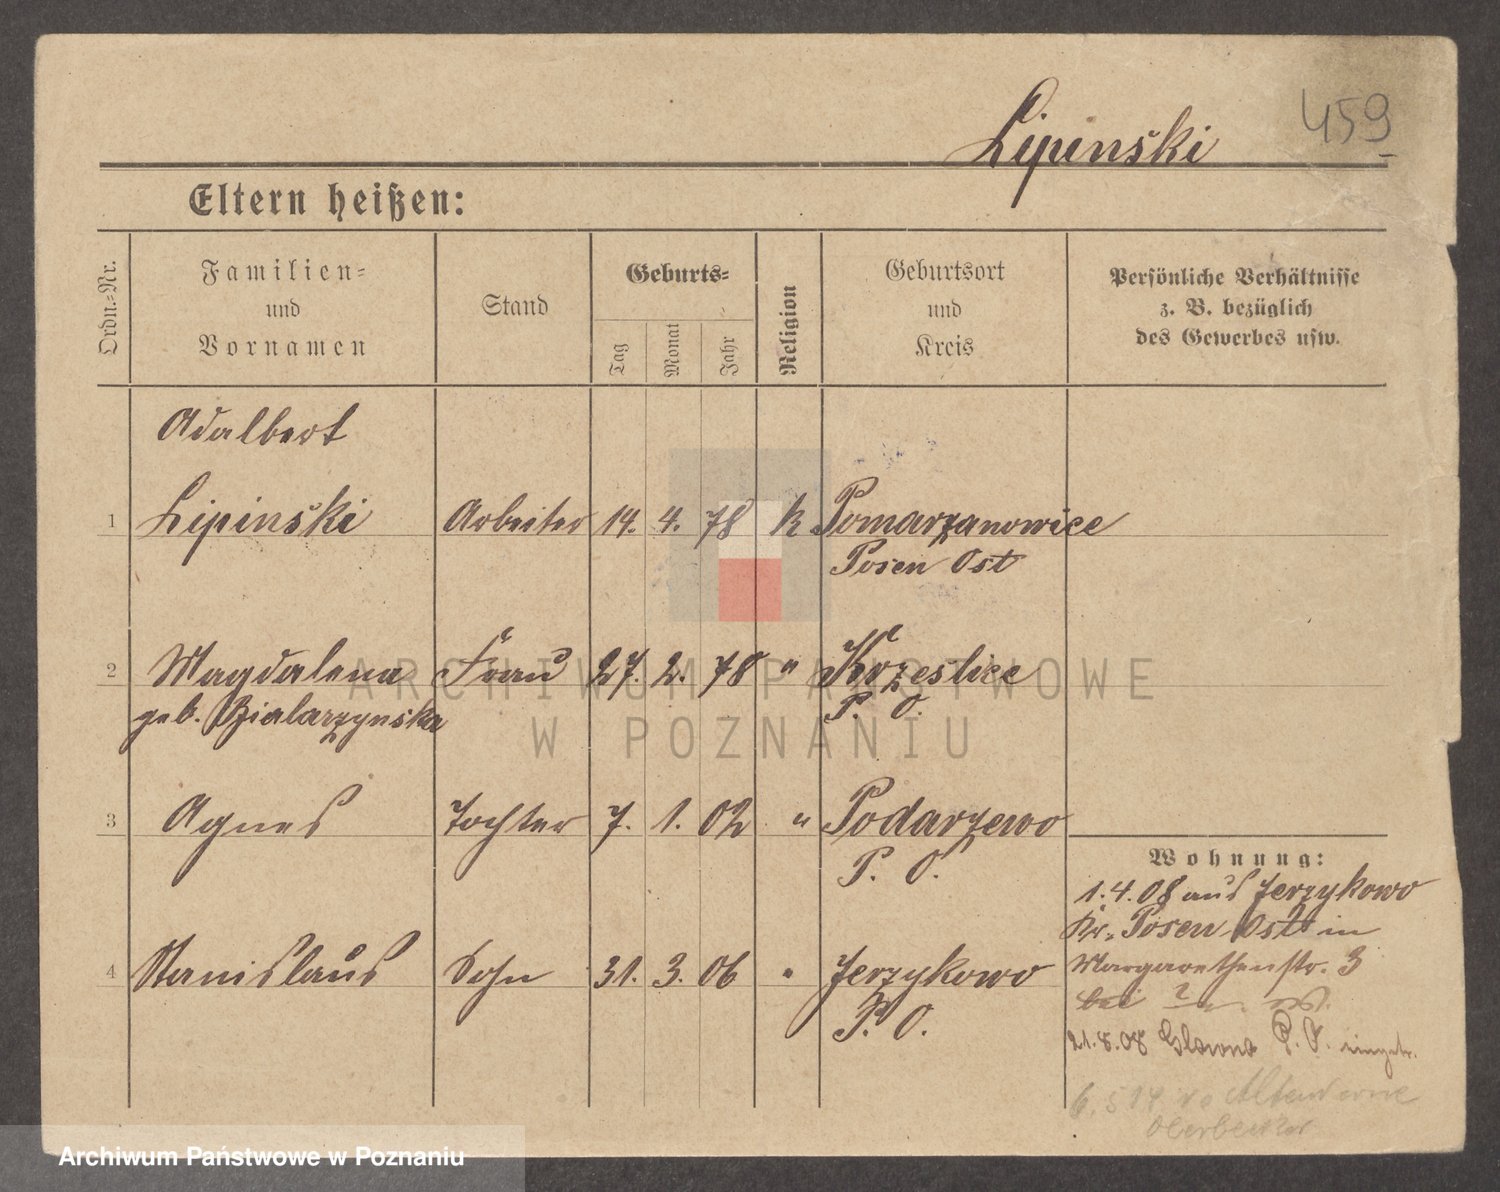 459
Lipinski
Eltern heißen:
Ordn.-Nr.
Familien-
und
Vornamen
Stand
Geburts-
Tag
Monat
Jahr
Religion
Geburtsort
und
Kreis
Persönliche Verhältnisse
z. B. bezüglich
des Gewerbes usw.
Adalbert
1 Lipinski Arbeiter 14. 4. 78 k Pomarzanowice
Posen Ost
2 Magdalena Frau 27. 2. 78 " Krzeslice
geb. P. O.
3 Agnes Tochter 7. 1. 02 " Podarzewo
P. O.
4 Stanislaus Sohn 31. 3. 06 " Jerzykowo
P. O.
Wohnung:
1.4.08 aus Jerzykowo
Kr. Posen Ost in
Margarethenstr. 3
bei
21.8.08 Glowno P. O.
6.5 14
ARCHIWUM PAŃSTWOWE
W POZNANIU
Archiwum Państwowe w Poznaniu